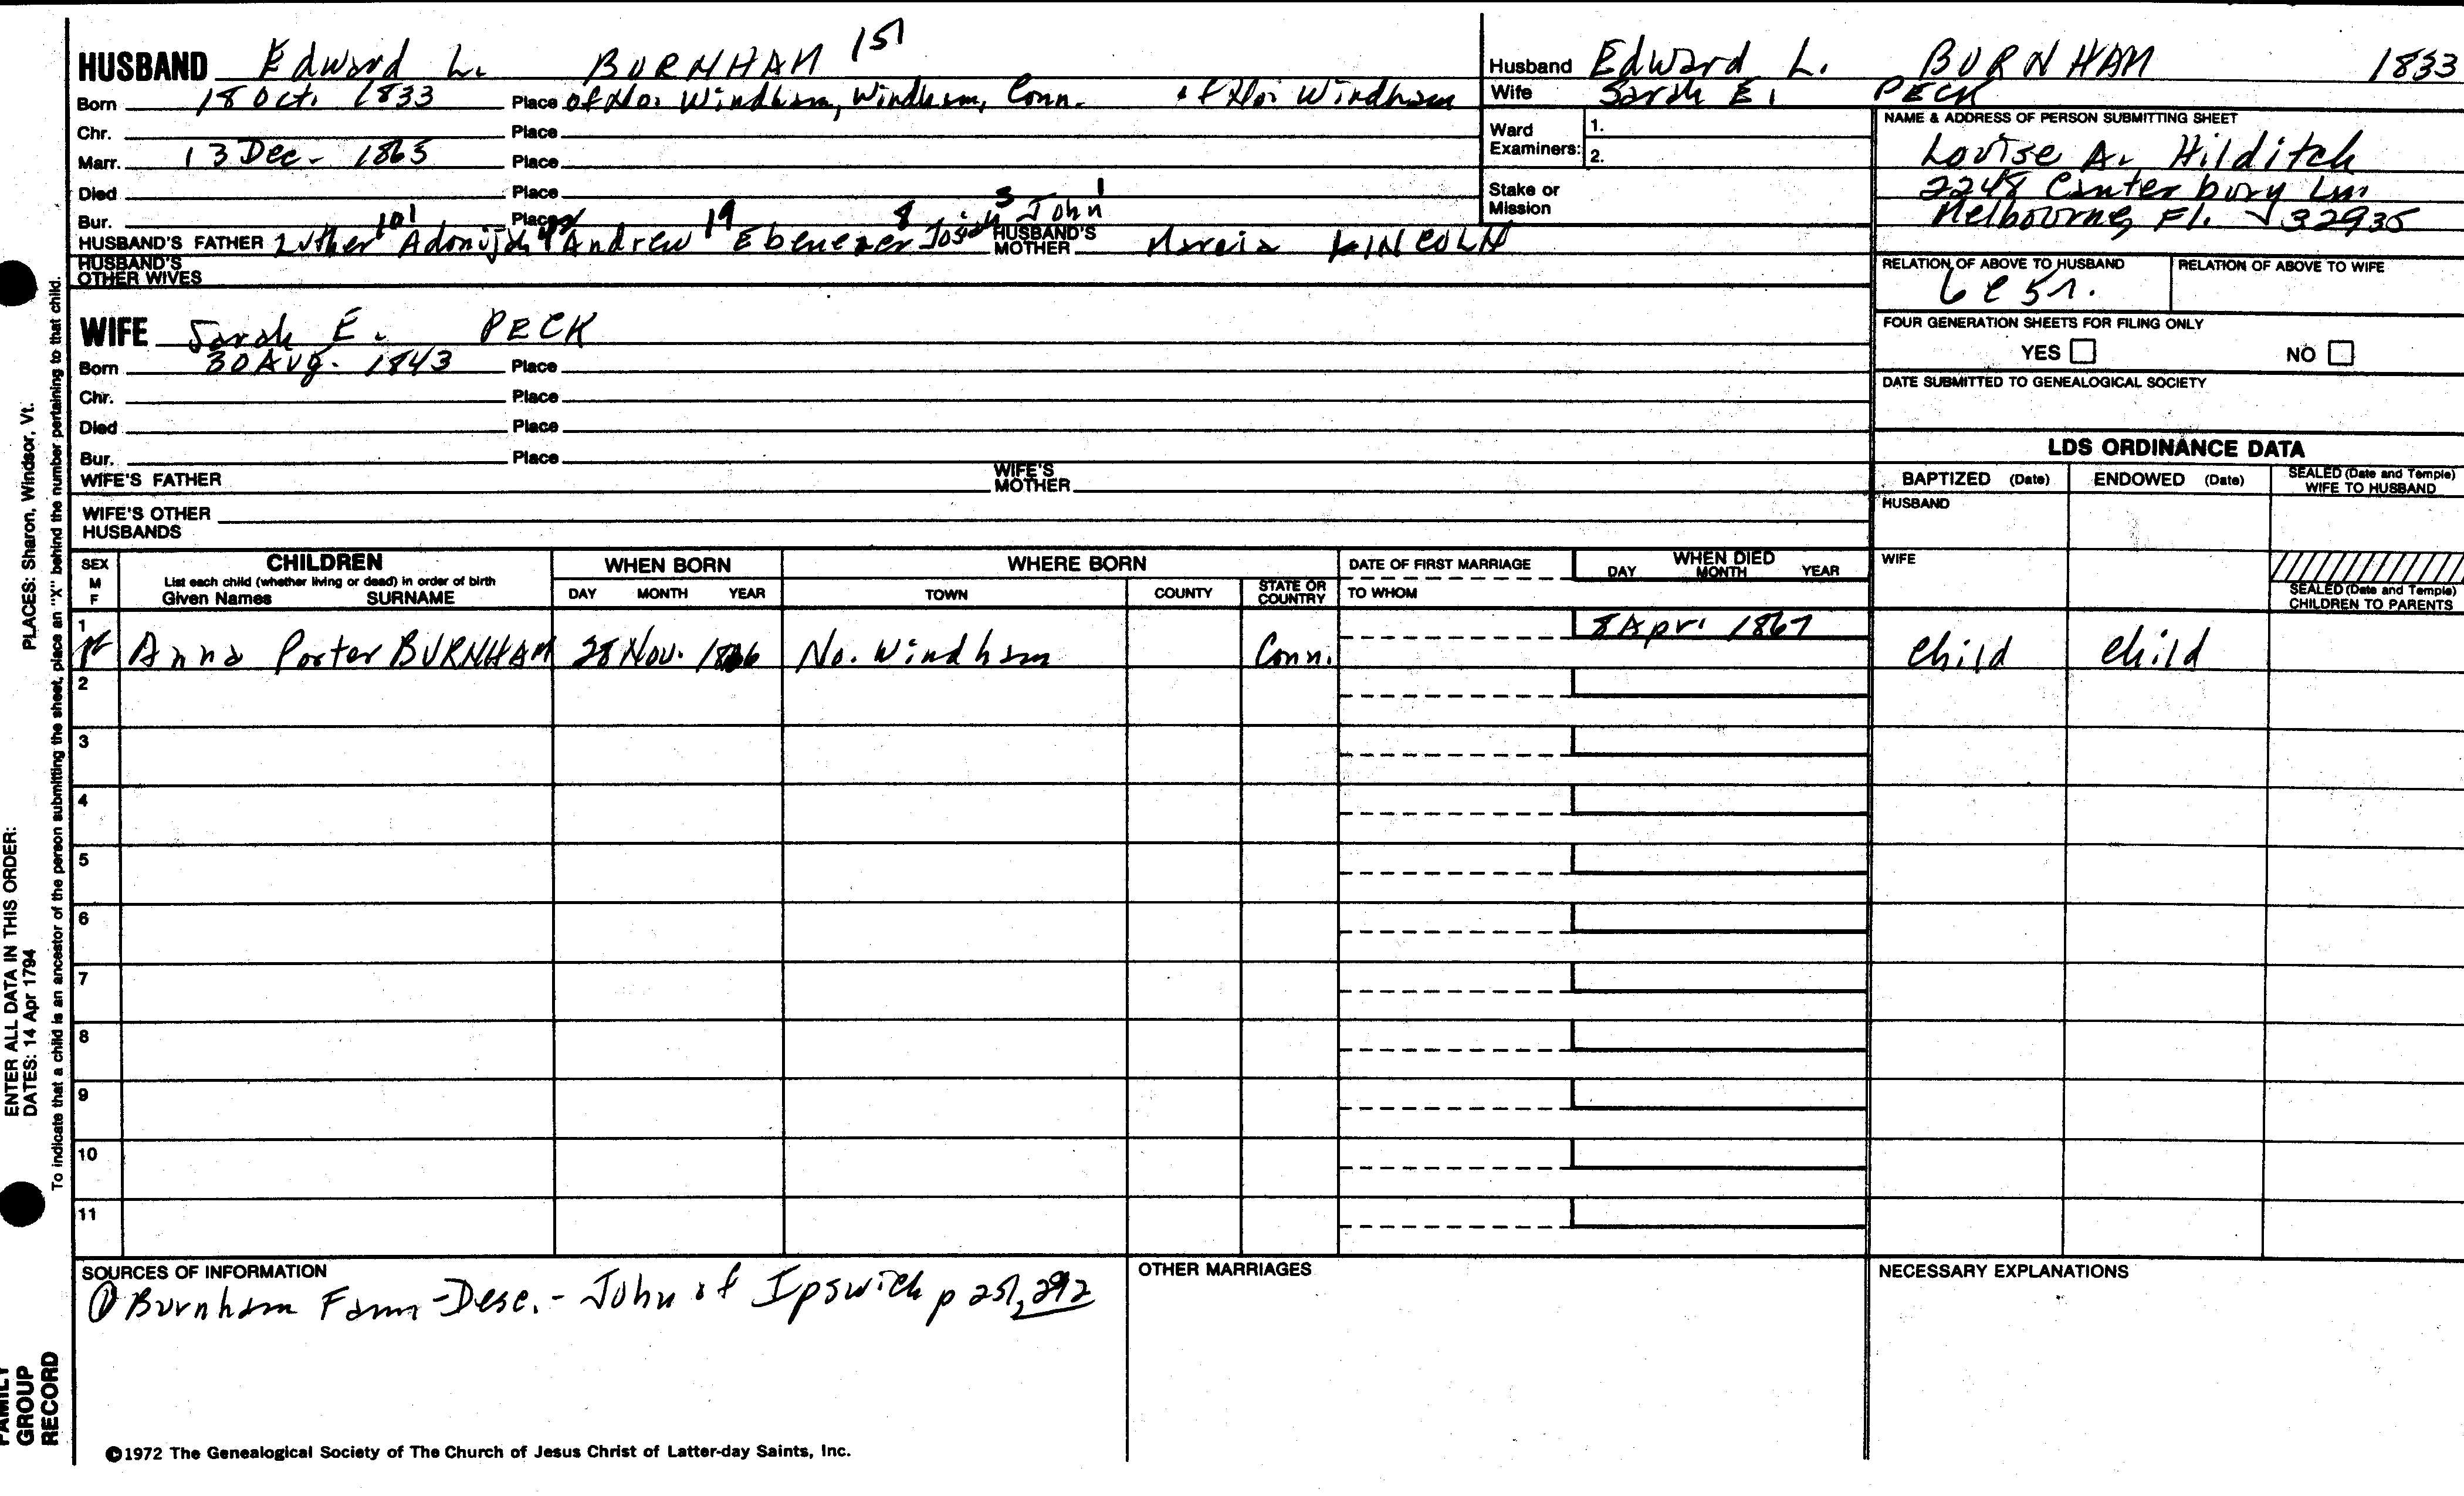 HUSBAND Edward L. BURNHAM 151
Born 18 Oct. 1833 Place of No. Windham, Windham, Conn. of No. Windham
Chr. Place
Marr. 13 Dec. 1865 Place
Died Place
Bur. Place
101 19 8 3 1
HUSBAND'S FATHER Luther Adonijah Andrew Ebenezer Josiah John HUSBAND'S MOTHER Marcia LINCOLN
HUSBAND'S OTHER WIVES
WIFE Sarah E. PECK
Born 30 Aug. 1843 Place
Chr. Place
Died Place
Bur. Place
WIFE'S FATHER WIFE'S MOTHER
WIFE'S OTHER HUSBANDS
Husband Edward L. BURNHAM 1833
Wife Sarah E. PECK
Ward Examiners: 1.
2.
Stake or Mission
NAME & ADDRESS OF PERSON SUBMITTING SHEET
Louise A. Hilditch
2248 Canterbury Ln
Melbourne, Fl. 32935
RELATION OF ABOVE TO HUSBAND RELATION OF ABOVE TO WIFE
6C5r.
FOUR GENERATION SHEETS FOR FILING ONLY
YES NO
DATE SUBMITTED TO GENEALOGICAL SOCIETY
LDS ORDINANCE DATA
BAPTIZED (Date) ENDOWED (Date) SEALED (Date and Temple) WIFE TO HUSBAND
HUSBAND
WIFE
SEALED (Date and Temple) CHILDREN TO PARENTS
SEX M F
CHILDREN
List each child (whether living or dead) in order of birth
Given Names SURNAME
WHEN BORN
DAY MONTH YEAR
WHERE BORN
TOWN COUNTY STATE OR COUNTRY
DATE OF FIRST MARRIAGE
TO WHOM
WHEN DIED
DAY MONTH YEAR
1 Anna Porter BURNHAM 28 Nov. 1866 No. Windham Conn. 8 Apr. 1867 Child Child
2
3
4
5
6
7
8
9
10
11
SOURCES OF INFORMATION
① Burnham Fam - Desc. - John of Ipswich p 251, 292
OTHER MARRIAGES
NECESSARY EXPLANATIONS
©1972 The Genealogical Society of The Church of Jesus Christ of Latter-day Saints, Inc.
ENTER ALL DATA IN THIS ORDER:
DATES: 14 Apr 1794 PLACES: Sharon, Windsor, Vt.
To indicate that a child is an ancestor of the person submitting the sheet, place an "X" behind the number pertaining to that child.
FAMILY
GROUP
RECORD